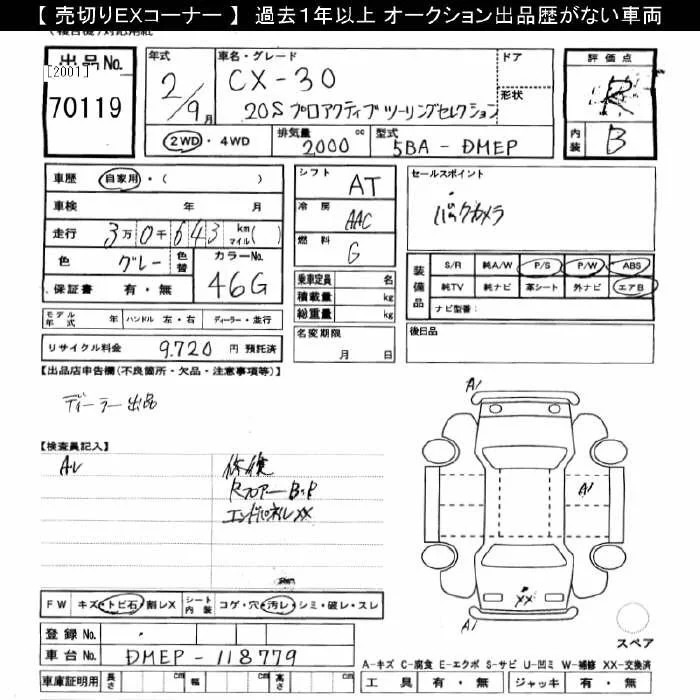 【 売切りEXコーナー 】 過去1年以上 オークション出品歴がない車両
出品No.
[2001]
70119
年式
2/9月
車名・グレード
CX-30
20S プロアクティブ ツーリングセレクション
ドア
形状
評価点
R
内装
B
2WD・4WD
排気量
2000 cc
型式
5BA - DMEP
車歴
自家用・( )
車検 年 月
走行
3万0千643 km マイル( )
色
グレー
色替
カラーNo.
46G
保証書 有・無
シフト
AT
冷房
AAC
燃料
G
乗車定員 名
積載量 kg
総重量 kg
名変期限
月 日
セールスポイント
バックカメラ
装備品
S/R 純A/W P/S P/W ABS
純TV 純ナビ 革シート 外ナビ エアB
ナビ型番:
後日品
モデル年式 年 ハンドル 左・右 ディーラー・並行
リサイクル料金 9,720 円 預託済
【出品店申告欄(不良箇所・欠品・注意事項等)】
ディーラー出品
【検査員記入】
修復
Rフロアー
エンドパネルXX
A1
A1
XX
A1
スペア
FW キズ・トビ石・割レX
シート内装 コゲ・穴・汚レ・シミ・破レ・スレ
登録No.
車台No. DMEP-118779
車庫証明用 長さ cm 幅 cm 高さ cm
A-キズ C-腐食 E-エクボ S-サビ U-凹ミ W-補修 XX-交換済
工具 有・無 ジャッキ 有・無